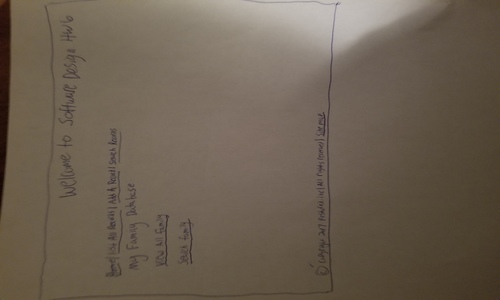 Welcome to Software Design HW6
Home | List All Records | Add A Record | Search Records
My Family Database
View All Family
Search Family
© Copyright 2017 | All rights reserved | License